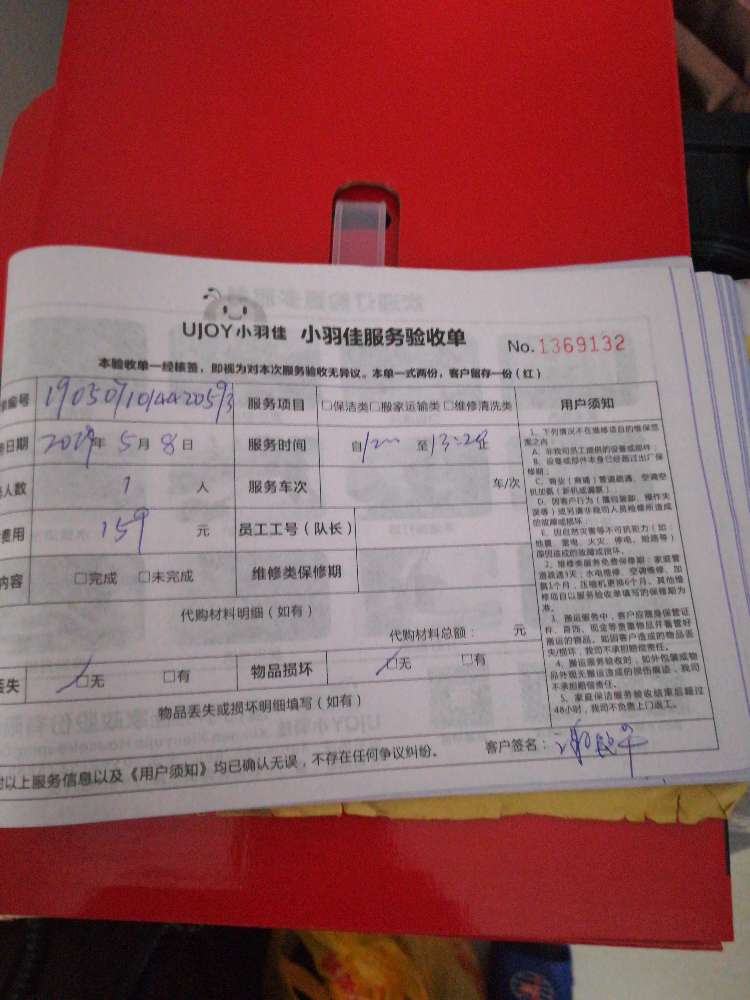 UJOY小羽佳 小羽佳服务验收单 No.1369132
本验收单一经核签，即视为对本次服务验收无异议。本单一式两份，客户留存一份（红）
编号 服务项目 □保洁类□搬家运输类□维修清洗类 用户须知
日期 年5月8日 服务时间 自 至 止
人数 1 人 服务车次 车/次
费用 159 元 员工工号（队长）
内容 □完成 □未完成 维修类保修期
代购材料明细（如有）
代购材料总额： 元
丢失 □无 □有 物品损坏 □无 □有
物品丢失或损坏明细填写（如有）
以上服务信息以及《用户须知》均已确认无误，不存在任何争议纠纷。 客户签名：
1、下列情况不在维修项目的维保范
围之内：
A、非我司员工提供的设备或部件；
B、设备或部件本身已经超过出厂保
修期；
C、商业（商铺）管道疏通、空调空
机加氟（新机或漏氟）；
D、因客户行为（擅自装卸、操作失
误等）或另请非我司人员维修所造成
的故障或损坏；
E、因自然灾害等不可抗拒力（如：
地震、雷电、火灾、停电、短路等）
原因造成的故障或损坏。
2、维修类服务免费保修期：家庭管
道疏通3天；水电维修、空调维修、加
氟1个月，压缩机更换6个月。其他维
修项目以服务验收单填写的保修期为
准。
3、搬运服务中，客户应随身保管证
件、首饰、现金等贵重物品并看管好
搬运的物品。如因客户造成的物品丢
失/损坏，我司不承担赔偿责任。
4、搬运服务验收时，如外包装或物
品外观无搬运造成的损伤痕迹，我司
不承担赔偿责任。
5、家庭保洁服务验收结束后超过
48小时，我司不负责上门返工。